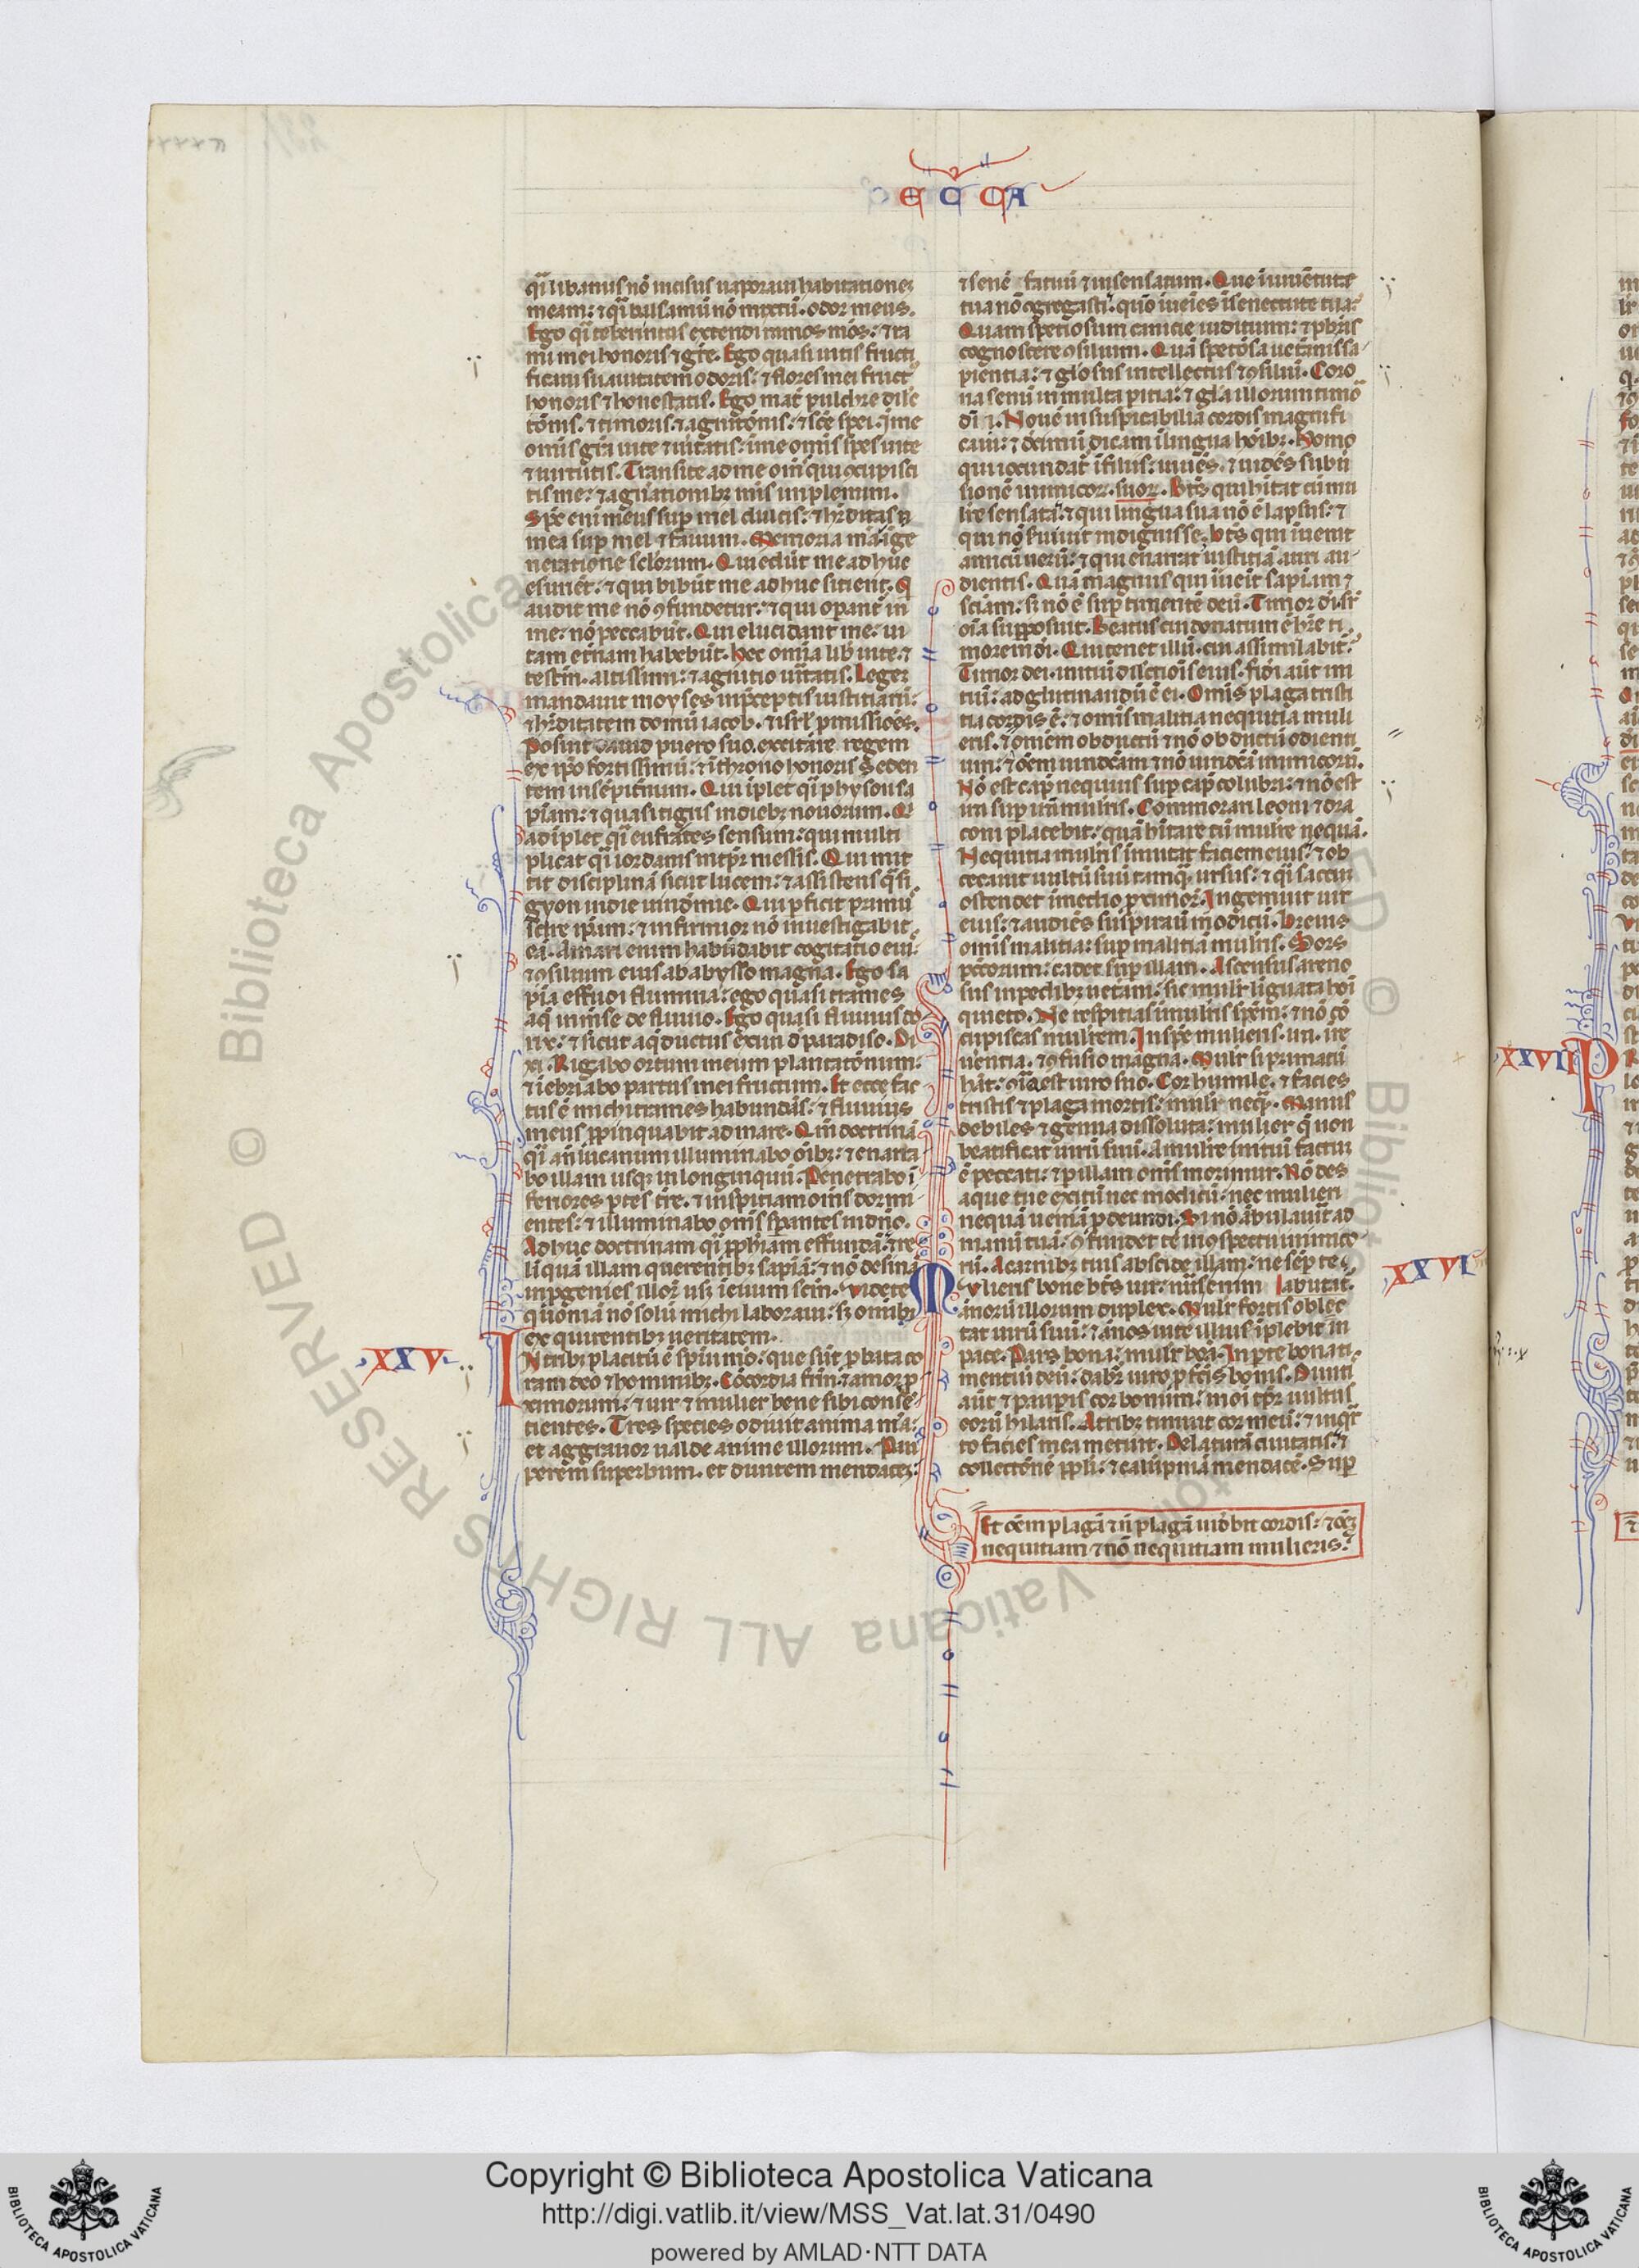 ECCA
qͣi libanus nō incisus uaporaui habitationeꝫ
meam: ⁊ qͣi balsamū nō mixtū. odor meus.
Ego qͣi terebintus extendi ramos mōs: ⁊ ra
mi mei honoris ⁊ gr̄e. Ego quasi uitis fructi
ficaui suauitatem odoris: ⁊ flores mei fruct᷒
honoris ⁊ honestatis. Ego mat̄ pulchre dile
ct̄onis. ⁊ timoris. ⁊ agnit̄onis: ⁊ sc̄e spei. J me
omīs gr̄a uite ⁊ uītatis: ī me omīs spes uite
⁊ uirtutis. Transite ad me om̄s qui ↄcupisci
tis me: ⁊ a gn̄ationibꝫ mīs implemini.
Sp̄c eni meus suꝑ mel dulcis: ⁊ h̄ditas
mea suꝑ mel ⁊ fauum. Memoria mā ī ge
neratione sclorum. Qui edūt me adhuc
esuriēt: ⁊ qui bibūt me adhuc sitient. Q
audit me nō ↄfundetur: ⁊ qui oꝑant̄ in
me: nō peccabūt. Qui elucidant me: ui
tam et̄nam habebūt. Hec omīa lib̄ uite. ⁊
testm̄. altissimi: ⁊ agnitio uītatis. Legeꝫ
mandauit moyses in p̄ceptis iustitiaꝝ:
⁊ h̄ditatem domui iacob. ⁊ isrl̄ ꝓmissiōes.
Posuit dauid puero suo. excitare regem
ex ip̄o fortissimū: ⁊ ī throno honoris Seden
tem in sēpit̄num. Qui īplet qͣi physon sa
piam: ⁊ quasi tigris in diebꝫ nouorum. Q
adīplet qͣi eufrates sensum: qui multi
plicat qͣi iordanis in tp̄r messis. Qui mit
tit disciplinā sicut lucem: ⁊ assistens qͣsi
gyon in die uindōmie. Qui ꝑficit primū
scire ip̄am: ⁊ infirmior nō inuestigabit
eā. A mari enim habūdabit cogitatio eiꝰ:
⁊ ↄsilium eius ab abysso magna. Ego sa
pīa effudi flumina: ego quasi trames
aq̄ inmēse de fluuio. Ego quasi fluuius do
rix: ⁊ sicut aq̄ductus exiui d̄ paradiso. Di
xi. Rigabo ortum meum plantat̄onum:
⁊ īebriabo partus mei fructum. Et ecce fac
tus ē michi trames habundās: ⁊ fluuius
meus ꝓpinquabit ad mare. Qm̄ doctrinā
qͣi an̄lucanum illuminabo oībꝫ: ⁊ enarra
bo illam usqꝫ in longinquū. Penetrabo ī
feriores ꝑtes tr̄e. ⁊ inspiciam om̄s dormi
entes: ⁊ illuminabo om̄s sꝑantes in dn̄o.
Adhuc doctrinam qͣi ꝓph̄iam effundā: ⁊ re
liquā illam querentibꝫ sapiā: ⁊ nō desinā
in ꝓgenies illoꝝ usꝫ ī euum scm̄. Videte
qūoniā nō solū michi laboraui: sꝫ omībꝫ
exquirentibꝫ ueritatem.
XXV
IN tribꝫ placitū ē spiritui mō: que sūt ꝓbata co
ram deo ⁊ hominibꝫ. Cōcordia frm̄. ⁊ amor ꝓ
ximorum: ⁊ uir ⁊ mulier bene sibi conse
tientes. Tres species odiuit anima mā:
et aggrauor ualde anime illorum. Pau
perem superbum. et diuitem mendacē:
⁊ senē fatuū ⁊ insensatum. Que ī iuuētute
tua nō ↄgregasti: quō īueies ī senectute tua:
Quam speciosum canicie iuditium: ⁊ pb̄ris
cognoscere ↄsilium. Quā speciosa uet̄anis sa
pientia: ⁊ gl̄osus intellectus ⁊ ↄsiliū. Coro
na senū in multa ꝑitia: ⁊ gl̄a illorum timō
dī ;. Nouē insuspicabilia cordis magnifi
caui: ⁊ dcimū dicam ī lingua hōibꝫ. Homo
qui iocundat̄ ī filiis: uiuēs. ⁊ uidēs subū
sionē inimicoꝝ. suoꝝ. Bt̄s qui hitat cū mu
liere sensata: ⁊ qui lingua sua nō ē lapsus: ⁊
qui nō s̄uiuit indignis se. Bt̄s qui inuenit
amicū uerū: ⁊ qui enarrat iustitiā auri au
dientis. Quā magnus qui īueit sapīam ⁊
sciām: si nō ē suꝑ timentē deū. Timor dī suꝑ
oīa supposuit. Beatus cui donatum ē hr̄e ti
morem di. Qui tenet illū. cui assimilabit̄:
Timor dei. initiū dilectiōis eius. fidī aūt ini
tiū: adglutinandū ē ei. Omīs plaga tristi
tia cordis ē: ⁊ omīs malitia nequitia muli
eris. ⁊ omēm obductū ⁊ nō obductū odienti
um: ⁊ oēm uindcām ⁊ nō uindcā inimicoꝝ.
Nō est cap̄ nequius suꝑ cap̄ colubri: ⁊ nō est
ira suꝑ irā mulrīs. Commorari leoni ⁊ dra
coni placebit: quā hītare cū mulr̄e nequā.
Nequitia mulrīs īmutat faciem eius: ⁊ ob
cecauit uultū suū tamqͣ. ursus: ⁊ qͣi saccū
ostendet ī medio ꝓximoꝝ. Ingemuit uir
eius: ⁊ audiēs suspirauit modicū. Breuis
omīs malitia: suꝑ malitiā mulrīs. Sors
pcc̄torum: cadet suꝑ illam. Ascensus areno
sus in pedibꝫ uet̄ani: sic mulr̄ liguata hoī
quieto. Ne respicias ī mulrīs spēm: ⁊ nō cō
cupiscas mulr̄em. In spē mulieris. un. ire
uerentia. ⁊ ↄfusio magna. Mulr̄ si primatū
hāt: ↄͣia est uiro suo. Cor humile. ⁊ facies
tristis ⁊ plaga mortis: mulr̄ neqͣ. Manus
debiles ⁊ genua dissoluta: mulier q̄ non
beatificat uirū suū. A muliere initiū factū
ē peccati: ⁊ ꝑ illam om̄s morimur. Nō des
aque tue exitū nec modicū: nec mulieri
nequā ueniā ꝓdeundi. Si nō ābulauīt ad
manū tuā: ↄfundet te in ↄspectu inimico
rū. A carnibꝫ tuis abscide illam: ne sēꝑ te
abutat̄.
XXVI
Mulieris bone bt̄s uir: nūs enim
ānorū illorum duplex. Mulr̄ fortis oblec
tat uirū suū: ⁊ ānos uite illius īplebit in
pace. Pars bona: mulr̄ boā. In ꝑte bona ti
mentiū deū: dabit̄ uiro ꝓ fc̄is bonis. Diuiti
aūt ⁊ pauꝑis cor bonum: ī oī tp̄r uultus
eorū hilaris. A tribꝫ timuit cor meū: ⁊ in qͣr
to facies mea metuit. Delaturā ciuitatis: ⁊
collect̄onē ppl̄i: ⁊ calūpniā mendacē. Suꝑ
Et oēm plagā ⁊ n̄ plagā uidebit cordis: ⁊ oēꝫ
nequitiam ⁊ nō nequitiam mulieris.
XXVII
P
Copyright © Biblioteca Apostolica Vaticana
http://digi.vatlib.it/view/MSS_Vat.lat.31/0490
powered by AMLAD·NTT DATA
BIBLIOTECA APOSTOLICA VATICANA
BIBLIOTECA APOSTOLICA VATICANA
ALL RIGHTS RESERVED © Biblioteca Apostolica Vaticana